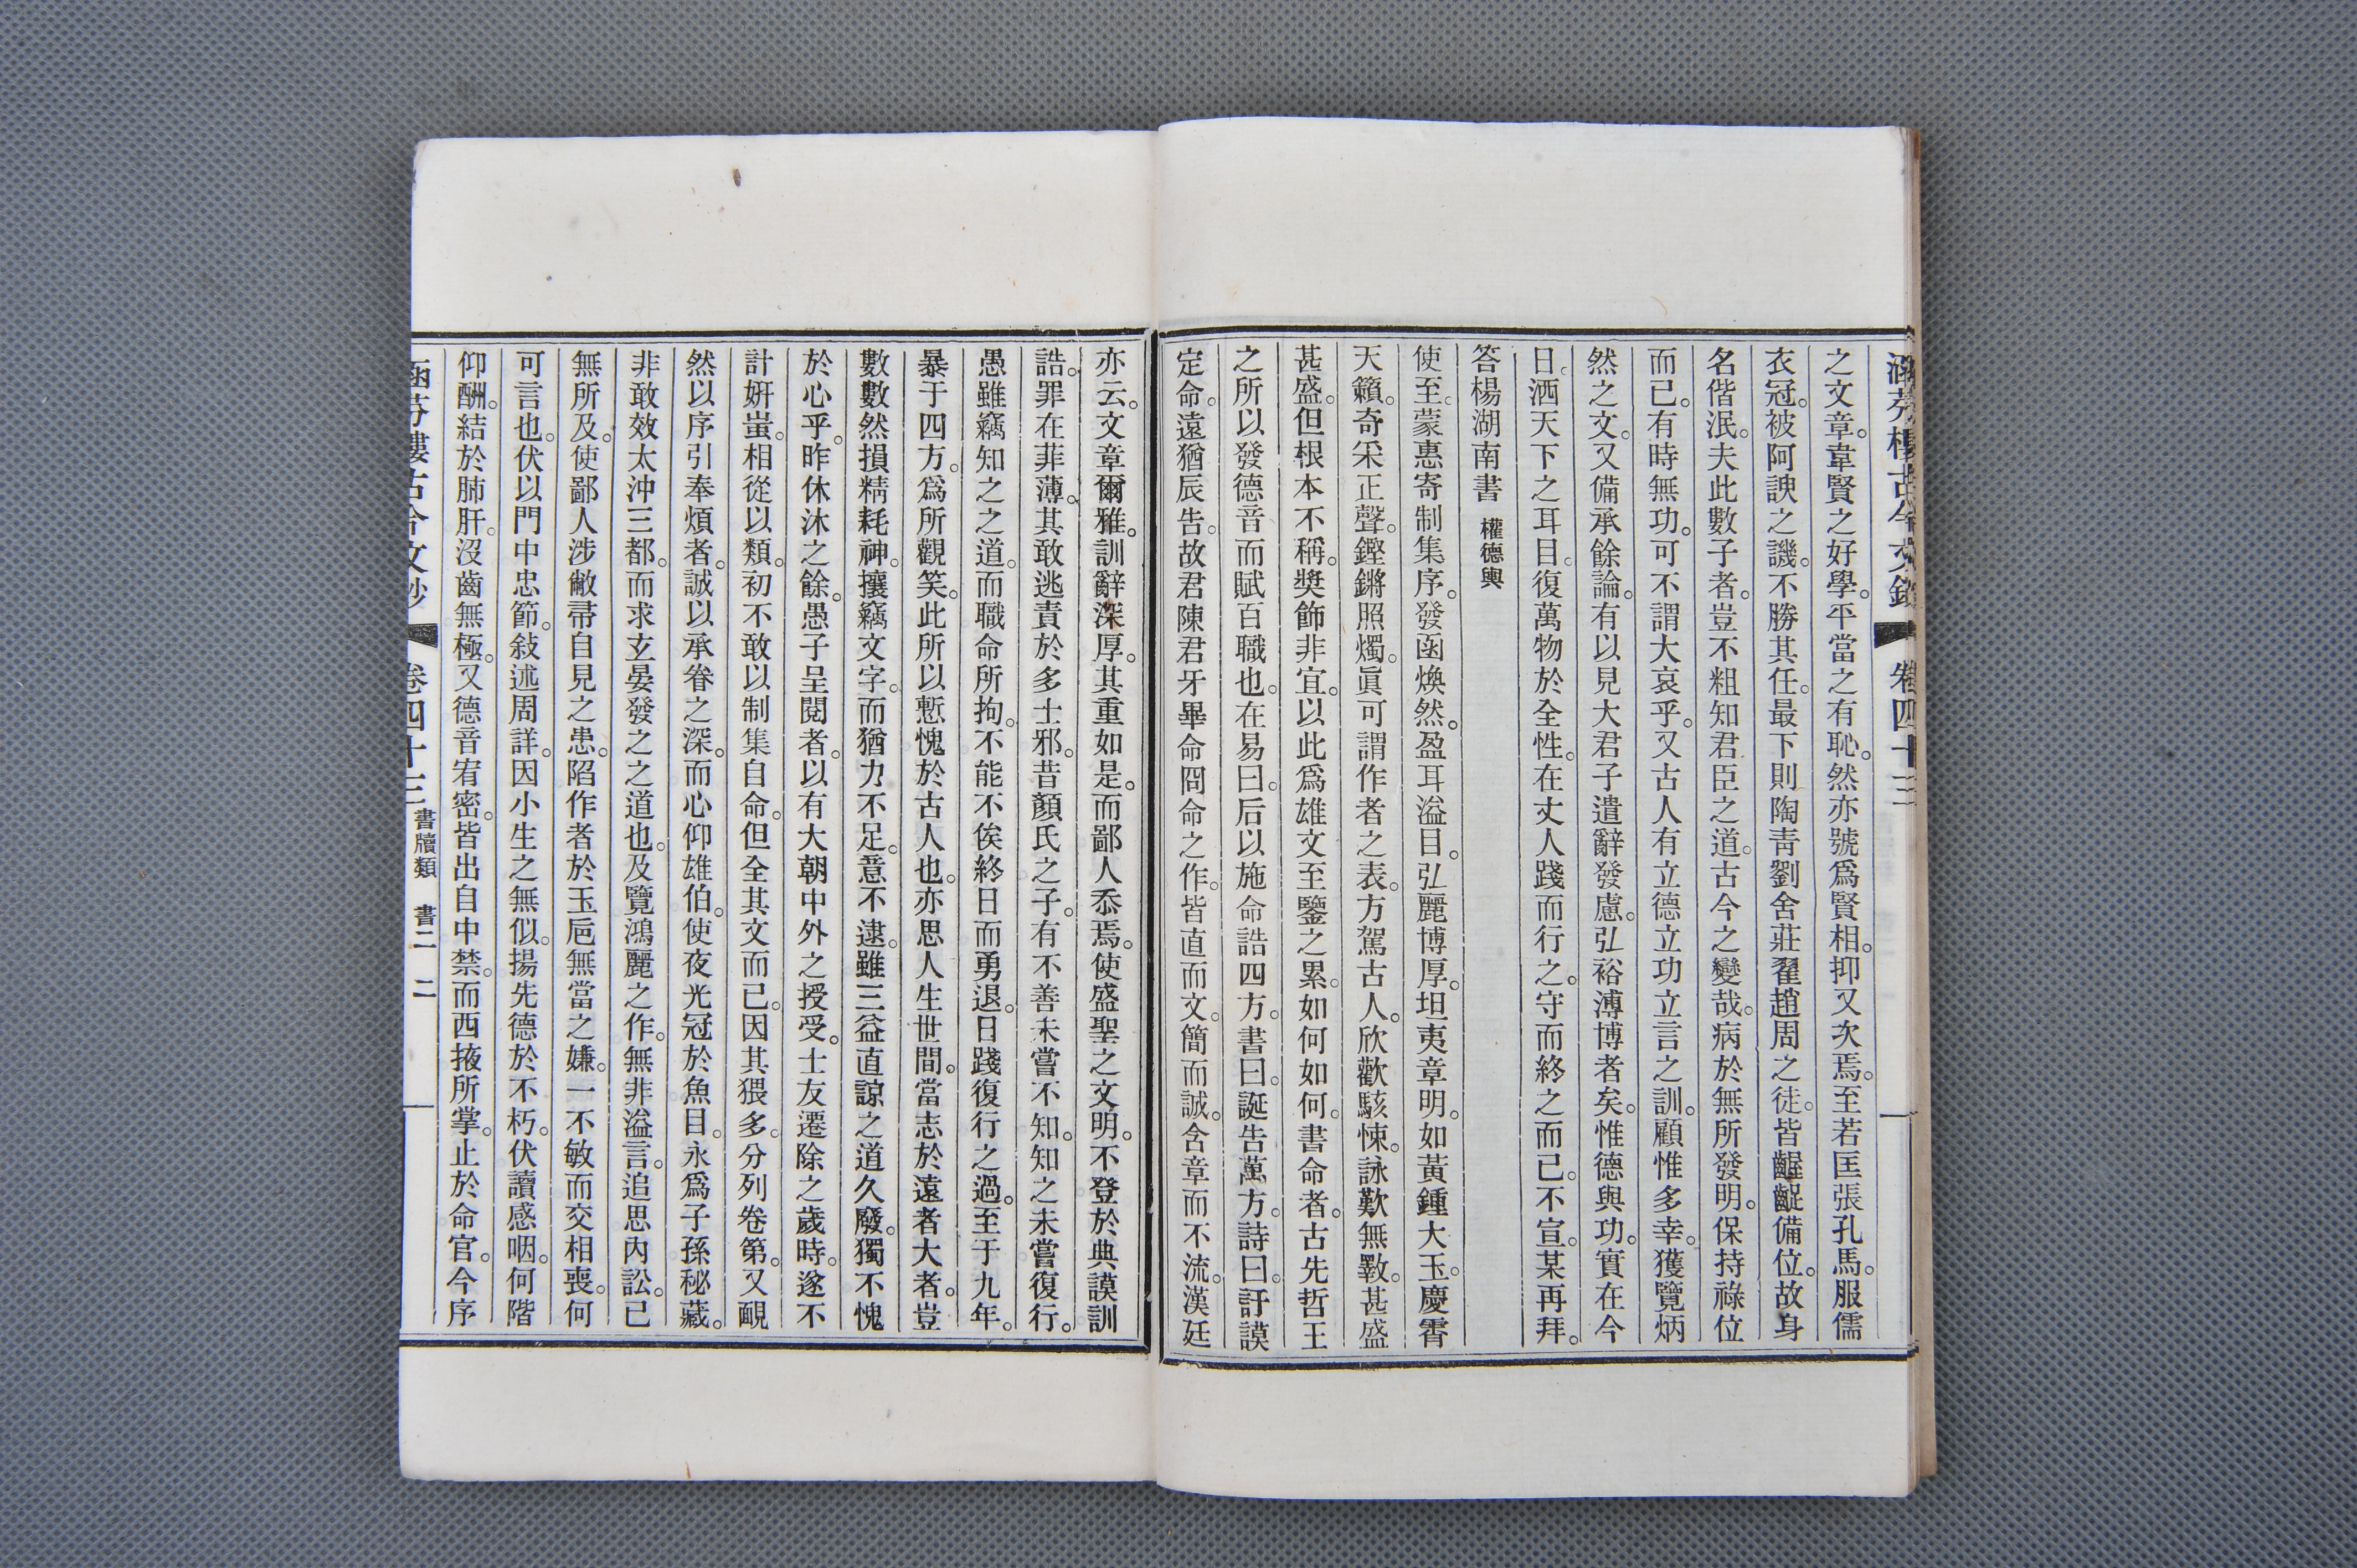 涵芬樓古今文鈔 卷四十三
之文章。韋賢之好學。平當之有恥。然亦號爲賢相。抑又次焉。至若匡張孔馬。服儒
衣冠。被阿諛之譏。不勝其任。最下則陶靑劉舍莊翟趙周之徒。皆齷齪備位。故身
名偕泯。夫此數子者。豈不粗知君臣之道。古今之變哉。病於無所發明。保持祿位
而已。有時無功。可不謂大哀乎。又古人有立德立功立言之訓。顧惟多幸。獲覽炳
然之文。又備承餘論。有以見大君子遣辭發慮。弘裕溥博者矣。惟德與功。實在今
日。洒天下之耳目。復萬物於全性。在丈人踐而行之。守而終之而已。不宣。某再拜。
答楊湖南書 權德輿
使至。蒙惠寄制集序。發函煥然。盈耳溢目。弘麗博厚。坦夷章明。如黃鍾大玉。慶霄
天籟。奇采正聲。鏗鏘照燭。眞可謂作者之表。方駕古人。欣歡駭悚。詠歎無斁。甚盛
甚盛。但根本不稱。獎飾非宜。以此爲雄文至鑒之累。如何如何。書命者。古先哲王
之所以發德音而賦百職也。在易曰。后以施命誥四方。書曰。誕告萬方。詩曰。訏謨
定命。遠猶辰告。故君陳君牙畢命冏命之作。皆直而文。簡而誠。含章而不流。漢廷
亦云。文章爾雅。訓辭深厚。其重如是。而鄙人忝焉。使盛聖之文明。不登於典謨訓
誥。罪在菲薄。其敢逃責於多士邪。昔顏氏之子。有不善未嘗不知。知之未嘗復行。
愚雖竊知之之道。而職命所拘。不能不俟終日而勇退。日踐復行之過。至于九年。
暴于四方。爲所觀笑。此所以慙愧於古人也。亦思人生世間。當志於遠者大者。豈
數數然損精耗神。攘竊文字。而猶力不足。意不逮。雖三益直諒之道久廢。獨不愧
於心乎。昨休沐之餘。愚子呈閱者。以有大朝中外之授受。士友遷除之歲時。遂不
計妍蚩。相從以類。初不敢以制集自命。但全其文而已。因其猥多。分列卷第。又靦
然以序引奉煩者。誠以承眷之深。而心仰雄伯。使夜光冠於魚目。永爲子孫秘藏。
非敢效太沖三都。而求玄晏發之之道也。及覽鴻麗之作。無非溢言。追思內訟。已
無所及。使鄙人涉敝帚自見之患。陷作者於玉巵無當之嫌。一不敏而交相喪。何
可言也。伏以門中忠節。敍述周詳。因小生之無似。揚先德於不朽。伏讀感咽。何階
仰酬。結於肺肝。沒齒無極。又德音宥密。皆出自中禁。而西掖所掌。止於命官。今序
涵芬樓古今文鈔 卷四十三 書牘類 書二 二